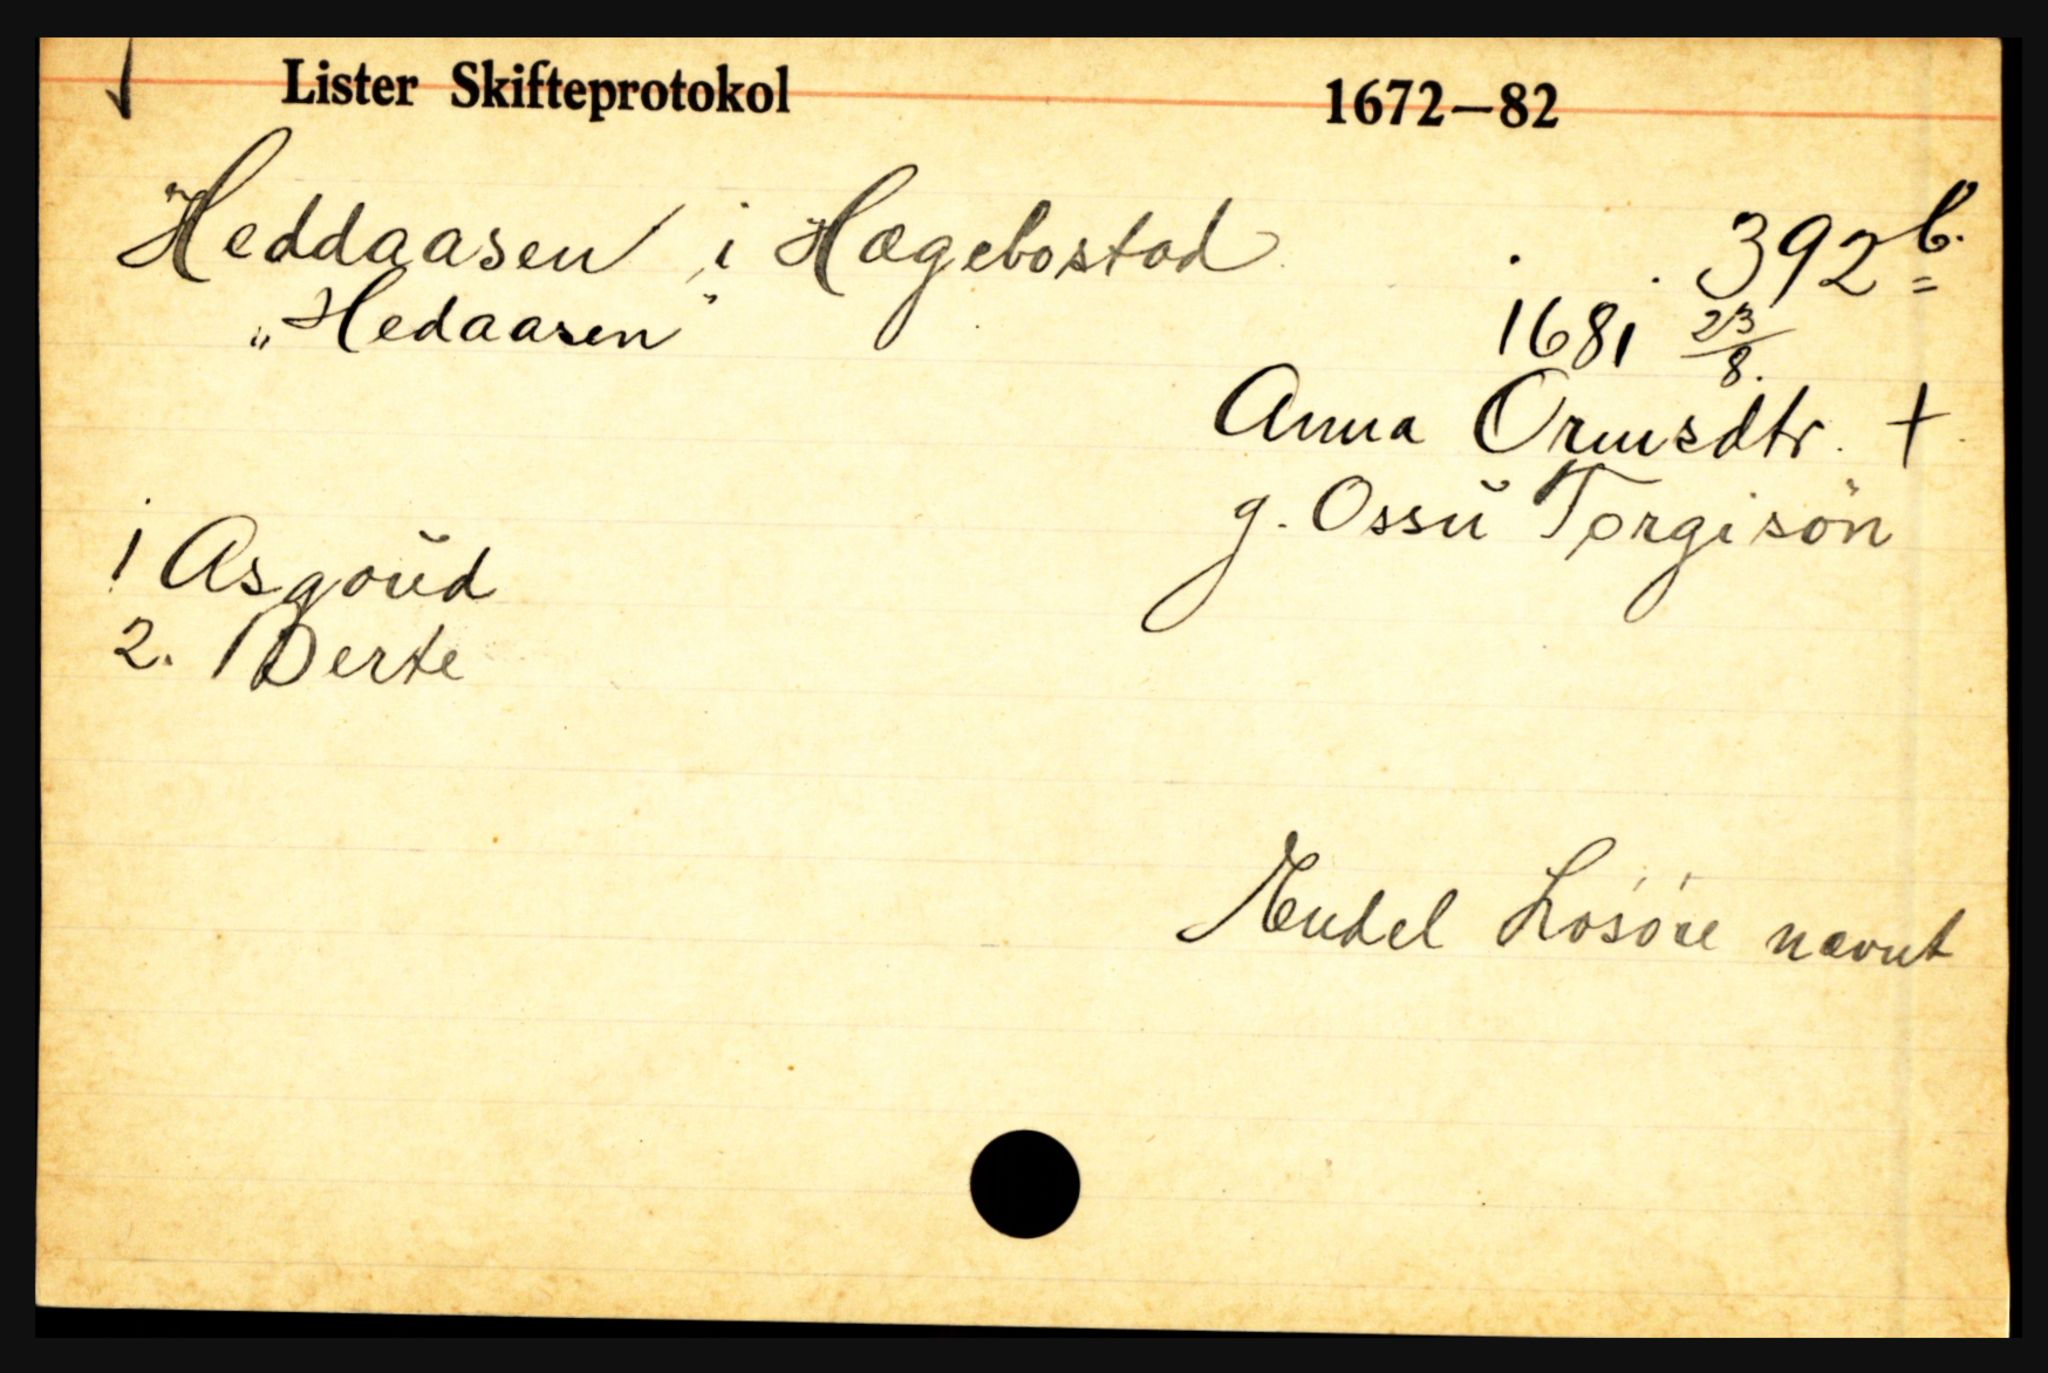 Lister Skifteprotokol 1672–82
Heddaasen i Hægebostad . . 392 b.
„Hedaasen" 1681 23/8.
Anna Ormsdtr. +
g. Ossŭ Torgisön
1 Asgoŭd
2. Berte
Endel Losöre nævnt